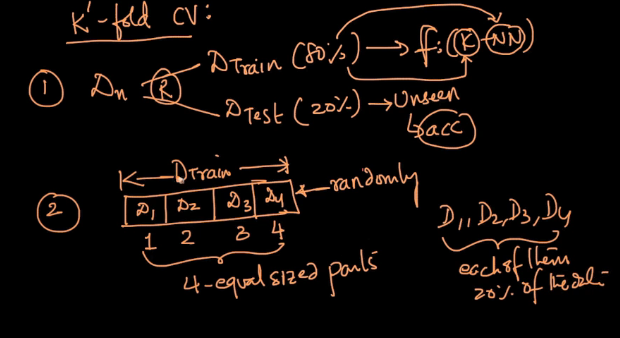 K'-fold CV:
DTrain (80%) → f: (K-NN)
① Dn R
DTest (20%) → Unseen
↳ acc
DTrain
② D1 D2 D3 D4 ← randomly
1 2 3 4
4-equal sized parts
D1, D2, D3, D4
each of them
20% of the